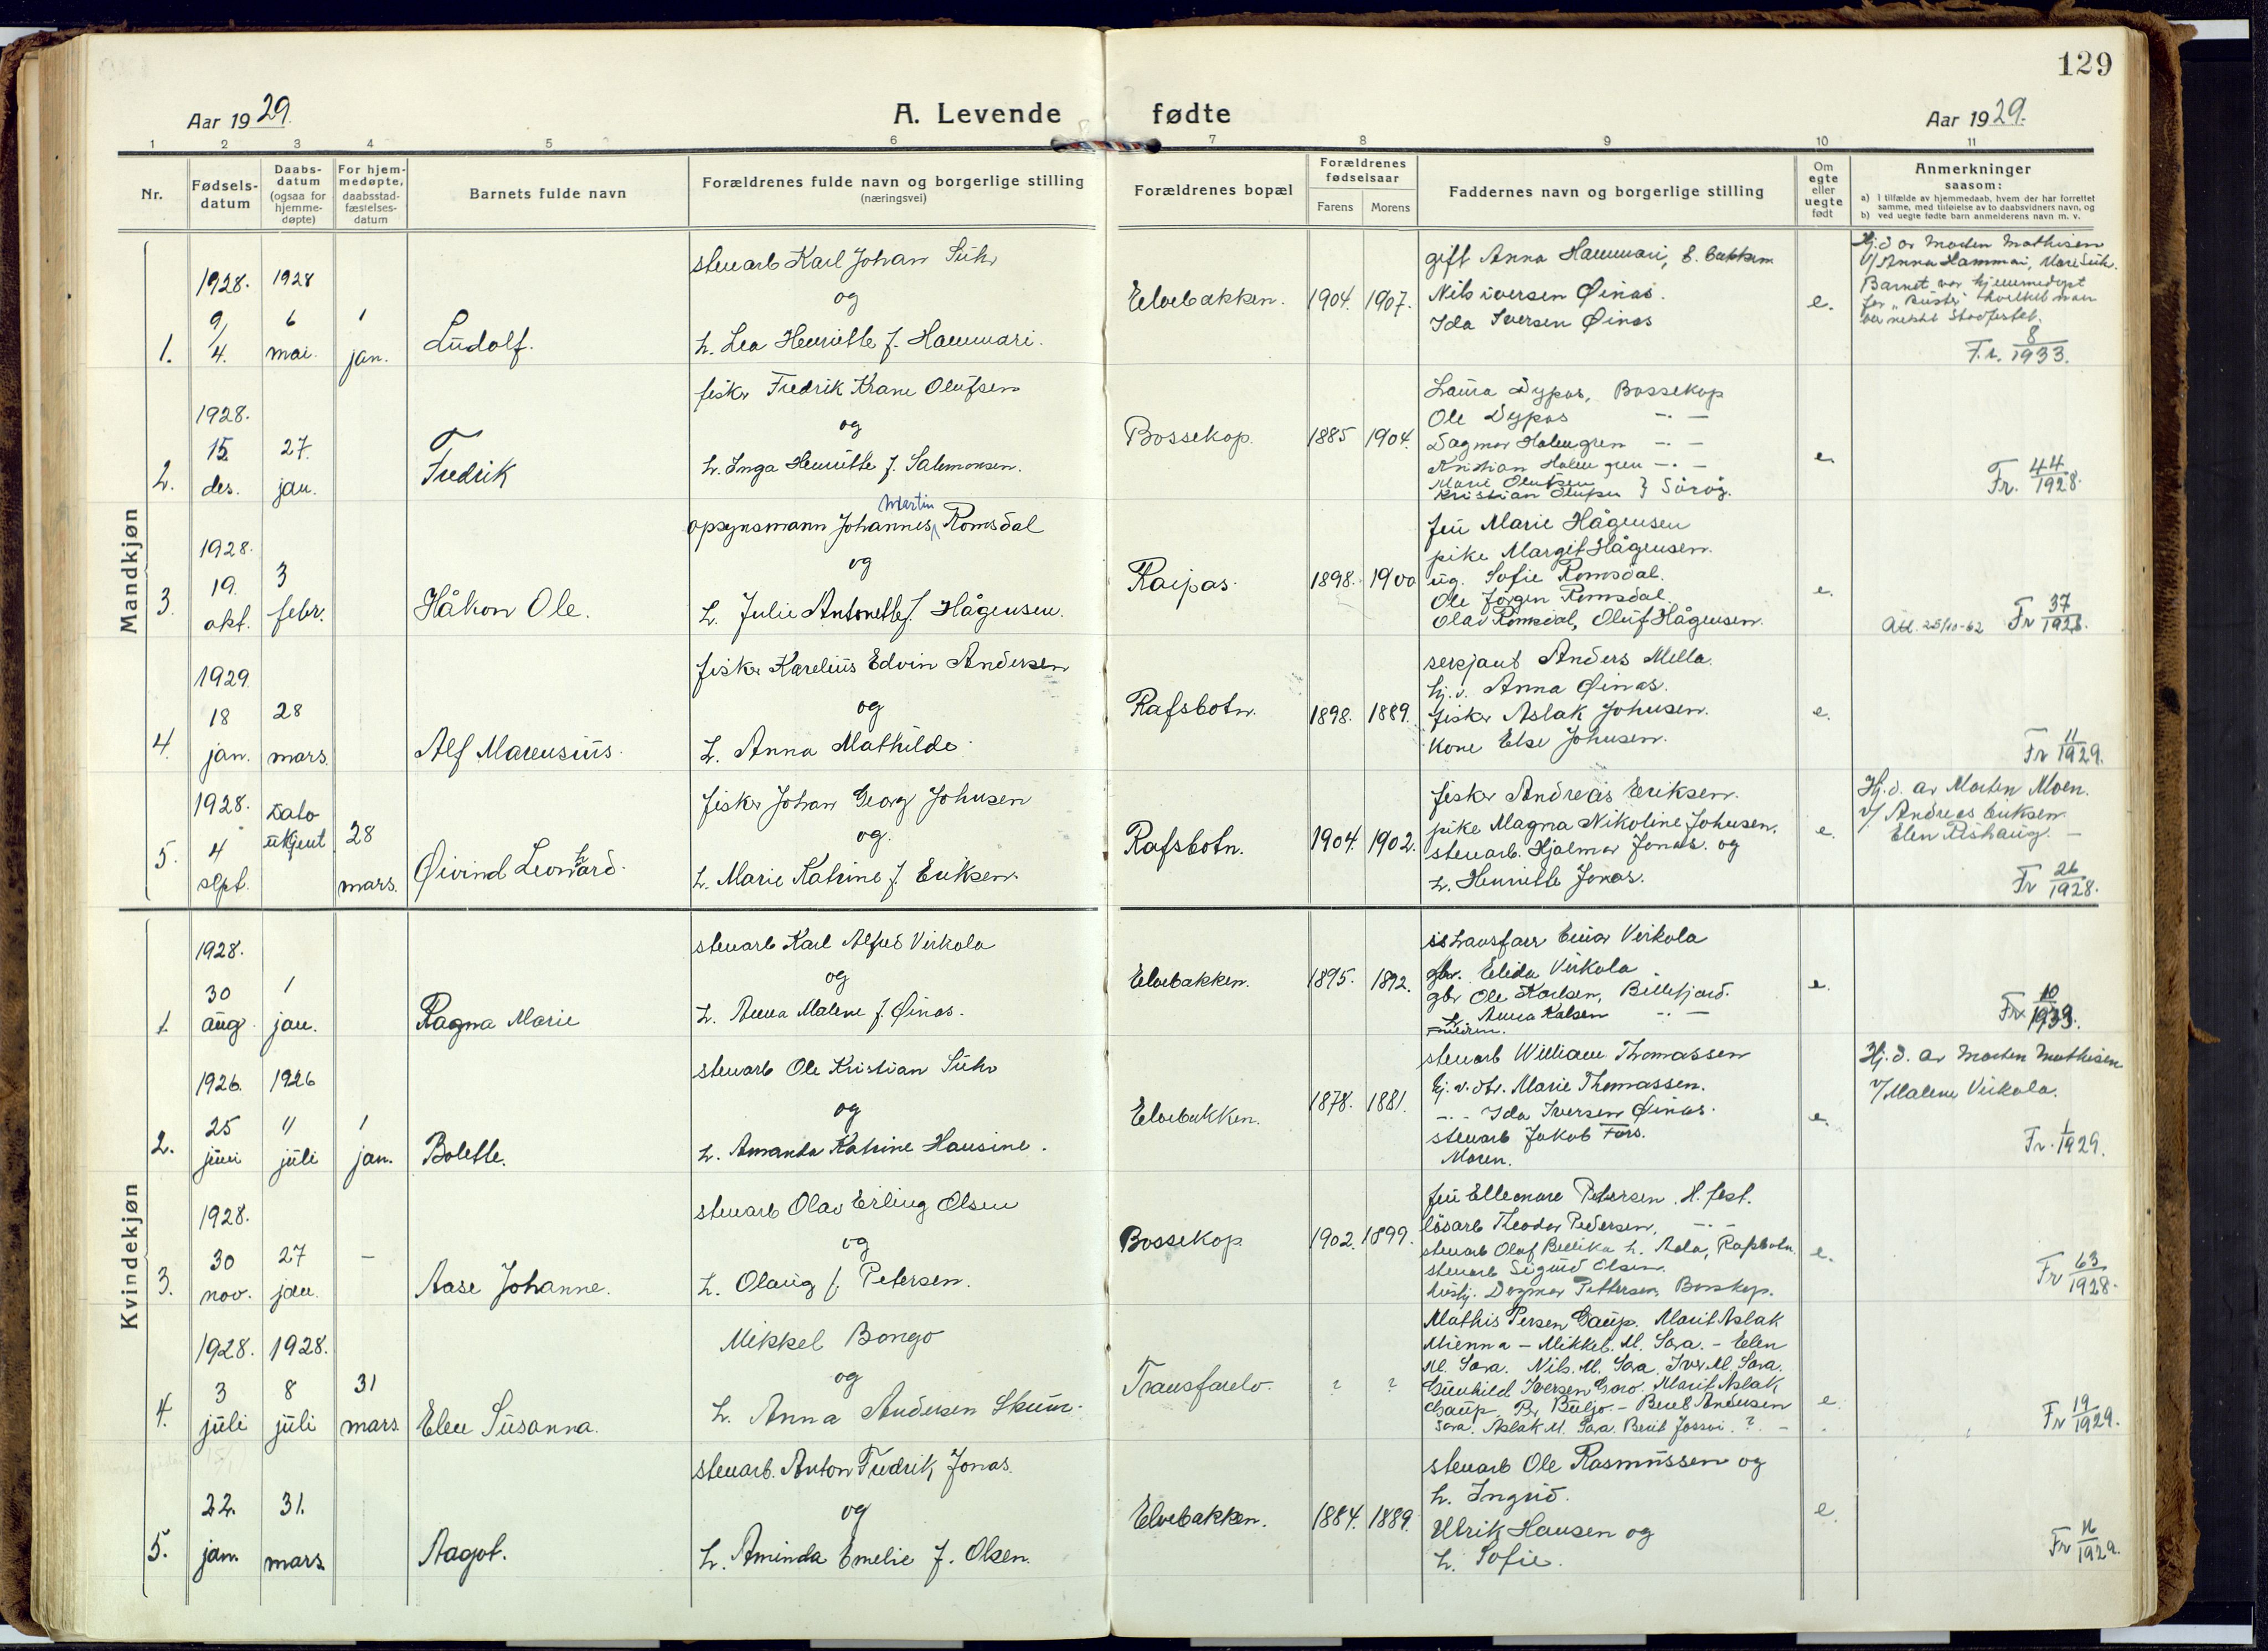 129
Aar 1929.
A. Levende fødte
Aar 1929.
1 2 3 4 5 6 7 8 9 10 11
Nr.
Fødsels-
datum
Daabs-
datum
(ogsaa for
hjemme-
døpte)
For hjem-
medøpte,
daabsstad-
fæstelses-
datum
Barnets fulde navn
Forældrenes fulde navn og borgerlige stilling
(næringsvei)
Forældrenes bopæl
Forældrenes
fødselsaar
Farens Morens
Faddernes navn og borgerlige stilling
Om
egte
eller
uegte
født
Anmerkninger
saasom:
a) I tilfælde av hjemmedaab, hvem der har forrettet
samme, med tilføielse av to daabsvidners navn, og
b) ved uegte fødte barn anmelderens navn m. v.
Mandkjøn
1.
1928.
9/
4.
1928
6
mai.
1
jan.
Ludolf.
stenarb Karl Johan Suhr
og
h. Lea Henriette f. Hammari.
Elvebakken.
1904. 1907.
gift Anna Hammari, E. bakken
Nils iversen Øinas.
Ida Iversen Øinas
e.
Hj.d av Morten Mathisen
v/ Anna Hammari, Mari Suhr.
Barnet var hjemmedøpt
Fr. 8/1933.
2.
1928.
15
des.
27.
jan.
Fredrik
fisker Fredrik Krane Olufsen
og
h. Inga Henriette f. Salamonsen.
Bossekop.
1885 1904.
Laura Dypas, Bossekop
Ole Dypas -.-
Dagmar Holmgren -.-
Kristian Holmgren -.-
Marie Olufsen
Kristian Olufsen } Sörøy.
e.
Fr. 44/1928.
3.
1928.
19.
okt.
3
febr.
Håkon Ole.
Martin
opsynsmann Johannes Romsdal
og
h. Julie Antonette f. Hågensen.
Raipas.
1898. 1900
fru Marie Hågensen
pike Margit Hågensen.
ug. Sofie Romsdal.
Ole Jørgen Romsdal.
Olav Romsdal, Oluf Hågensen.
e.
Att. 25/10-62 Fr 37/1928.
4.
1929
18
jan.
28
mars.
Alf Marensius.
fisker Karelius Edvin Andersen
og
h. Anna Mathilde.
Rafsbotn.
1898. 1889.
serjant Anders Mella.
hj.v. Anna Øinas.
fisker Aslak Johnsen.
Kone Else Johnsen.
e.
Fr 11/1929.
5.
1928.
4
sept.
Dato
ukjent
28
mars.
Øivind Leonhard.
fisker Johan Georg Johnsen
og.
h. Marie Katrine f. Eriksen.
Rafsbotn.
1904. 1902.
fisker Andreas Eriksen.
pike Magna Nikoline Johnsen.
stenarb. Hjalmar Jonas. og
h. Henriette Jonas.
e.
Hj.d. av Morten Moen.
v/ Andreas Eriksen
Elen Rishaug. -
Fr 26/1928.
Kvindekjøn
1.
1928.
30
aug.
1
jan.
Ragna Marie
stenarb Karl Alfred Virkola
og
h. Anna Malene f. Øinas.
Elvebakken.
1895. 1892.
Einar Virkola
gbr. Elida Virkola
gbr Ole Karlsen, Billefjord.
h. Anna Kalsen -.-
e.
2.
1926.
25
juni
1926
11
juli
1
jan.
Bolette.
stenarb Ole Kristian Suhr
og
h. Amanda Katrine Hansine.
Elvebakken.
1878. 1881.
stenarb William Thomassen
hj.v.dtr. Marie Thomassen.
-.- Ida Iversen Øinas.
stenarb Jakob Fors.
Moren.
e.
Hj.d. av Morten Mathisen
v/ Malene Virkola.
Fr. 1/1929.
3.
1928.
30
nov.
27
jan.
-
Aase Johanne.
stenarb Olav Erling Olsen
og
h. Olaug f. Petersen.
Bossekop
1902. 1899.
fru Elleonore Petersen. H.fest.
løsarb Theodor Pedersen, -.-
stenarb Olaf Bellika h. Ada, Rafsbotn.
stenarb Sigurd Olsen.
hustj. Dagmar Pettersen, Bossekop.
e.
Fr 63/1928.
4.
1928.
3
juli
1928.
8
juli
31
mars.
Elen Susanna.
Mikkel Bongo
og
h. Anna Andersen Skum.
Transfarelv.
? ?
Mathis Persen Gaup. Marit Aslak
Mienna - Mikkel. M. Sara. - Elen
M. Sara. Nils. M. Sara, Iver M. Sara.
Gunhild Iversen Marit Aslak
Gaup, Pr. Buljo - Berit Andersen
Sara. Aslak M. Sara. Berit ? -
e.
Fr 19/1929.
5.
22.
jan.
31.
mars.
Aagot.
stenarb. Anton Fredrik Jonas.
og
h. Aminda Emelie f. Olsen.
Elvebakken.
1884. 1889.
stenarb Ole Rasmussen og
h. Ingrid.
Ulrik Hansen og
h. Sofie.
e.
Fr 16/1929.